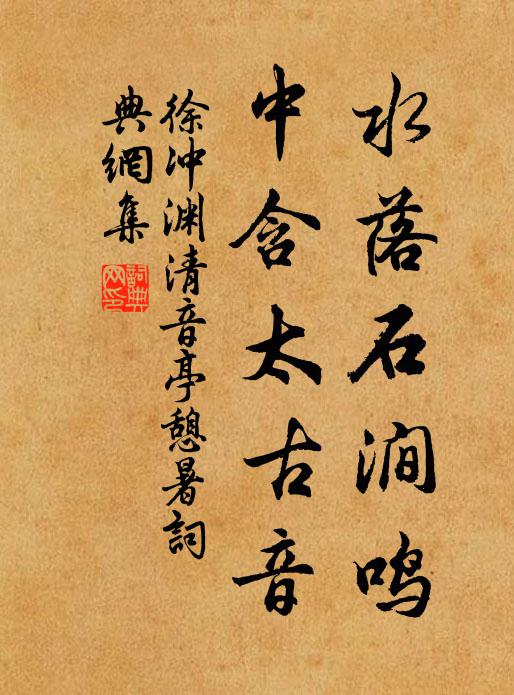 水落石涧鸣
中含太古音
徐沖渊清音亭憩暑詞
典網集
詞典
网印